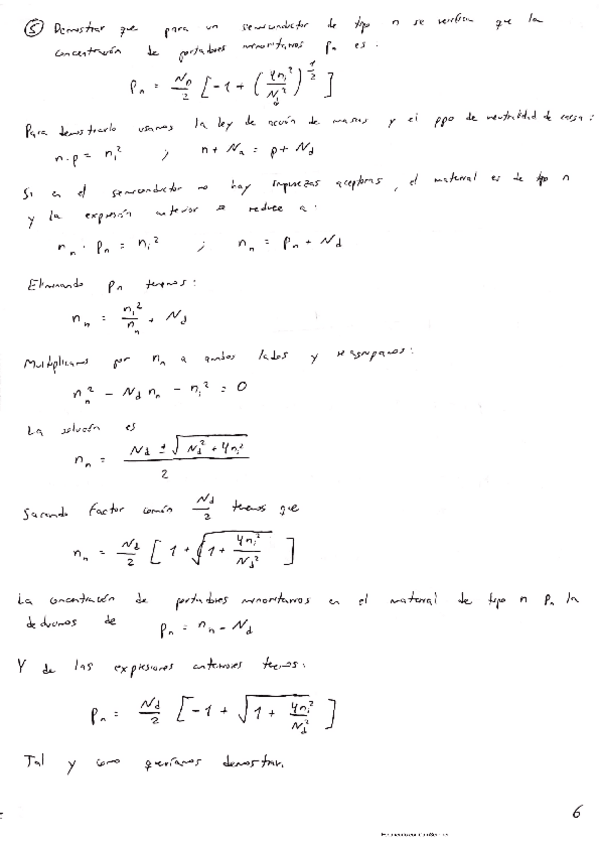 5 Demostrar que para un semiconductor de tipo n se verifica que la
concentración de portadores minoritarios Pn es:
Pn = Nd/2 [ -1 + (4ni²/Nd²)^(1/2) ]
Para demostrarlo usamos la ley de acción de masas y el ppo de neutralidad de carga:
n·p = ni² ; n + Na = p + Nd
Si en el semiconductor no hay impurezas aceptoras, el material es de tipo n
y la expresión anterior se reduce a:
nn · Pn = ni² ; nn = Pn + Nd
Eliminando Pn tenemos:
nn = ni²/nn + Nd
Multiplicamos por nn a ambos lados y reagrupamos:
nn² - Nd nn - ni² = 0
La solución es
nn = (Nd ± √(Nd² + 4ni²))/2
Sacando factor común Nd/2 tenemos que
nn = Nd/2 [ 1 + √(1 + 4ni²/Nd²) ]
La concentración de portadores minoritarios en el material de tipo n Pn la
deducimos de Pn = nn - Nd
Y de las expresiones anteriores tenemos:
Pn = Nd/2 [ -1 + √(1 + 4ni²/Nd²) ]
Tal y como queríamos demostrar.
6